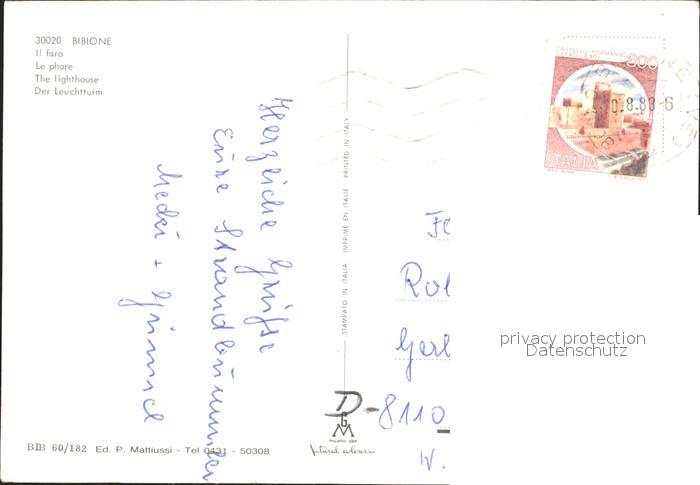 30020 BIBIONE
Il faro
Le phare
The lighthouse
Der Leuchtturm
Herzliche Grüße
Eure Strandbummler
+
STAMPATO IN ITALIA IMPRIMÉ EN ITALIE PRINTED IN ITALY
CASTELLO NORMANNO
SVEVO · BARI
900
ITALIA
.8.83-6
Rol
Gerl
D-8110
IV.
privacy protection
Datenschutz
DGM
MILANO
Natural colours
BIB 60/182 Ed. P. Mattiussi - Tel 0431 - 50308